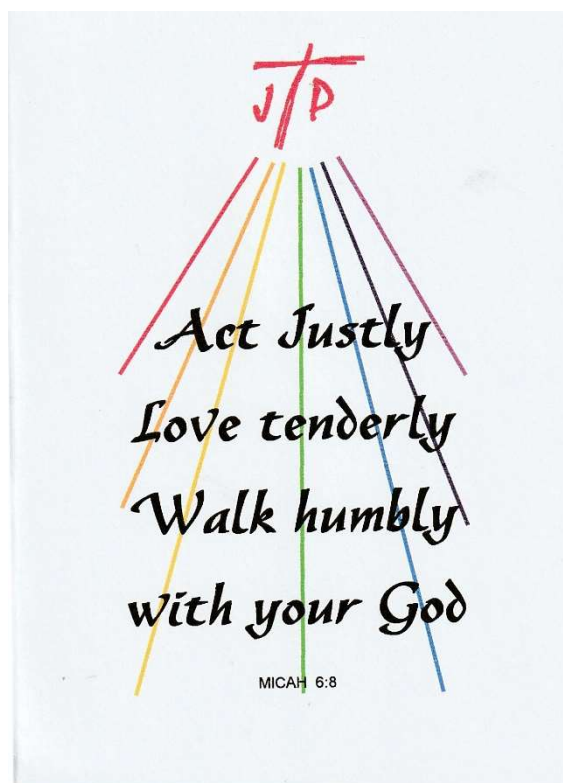 J P
Act Justly
Love tenderly
Walk humbly
with your God
MICAH 6:8